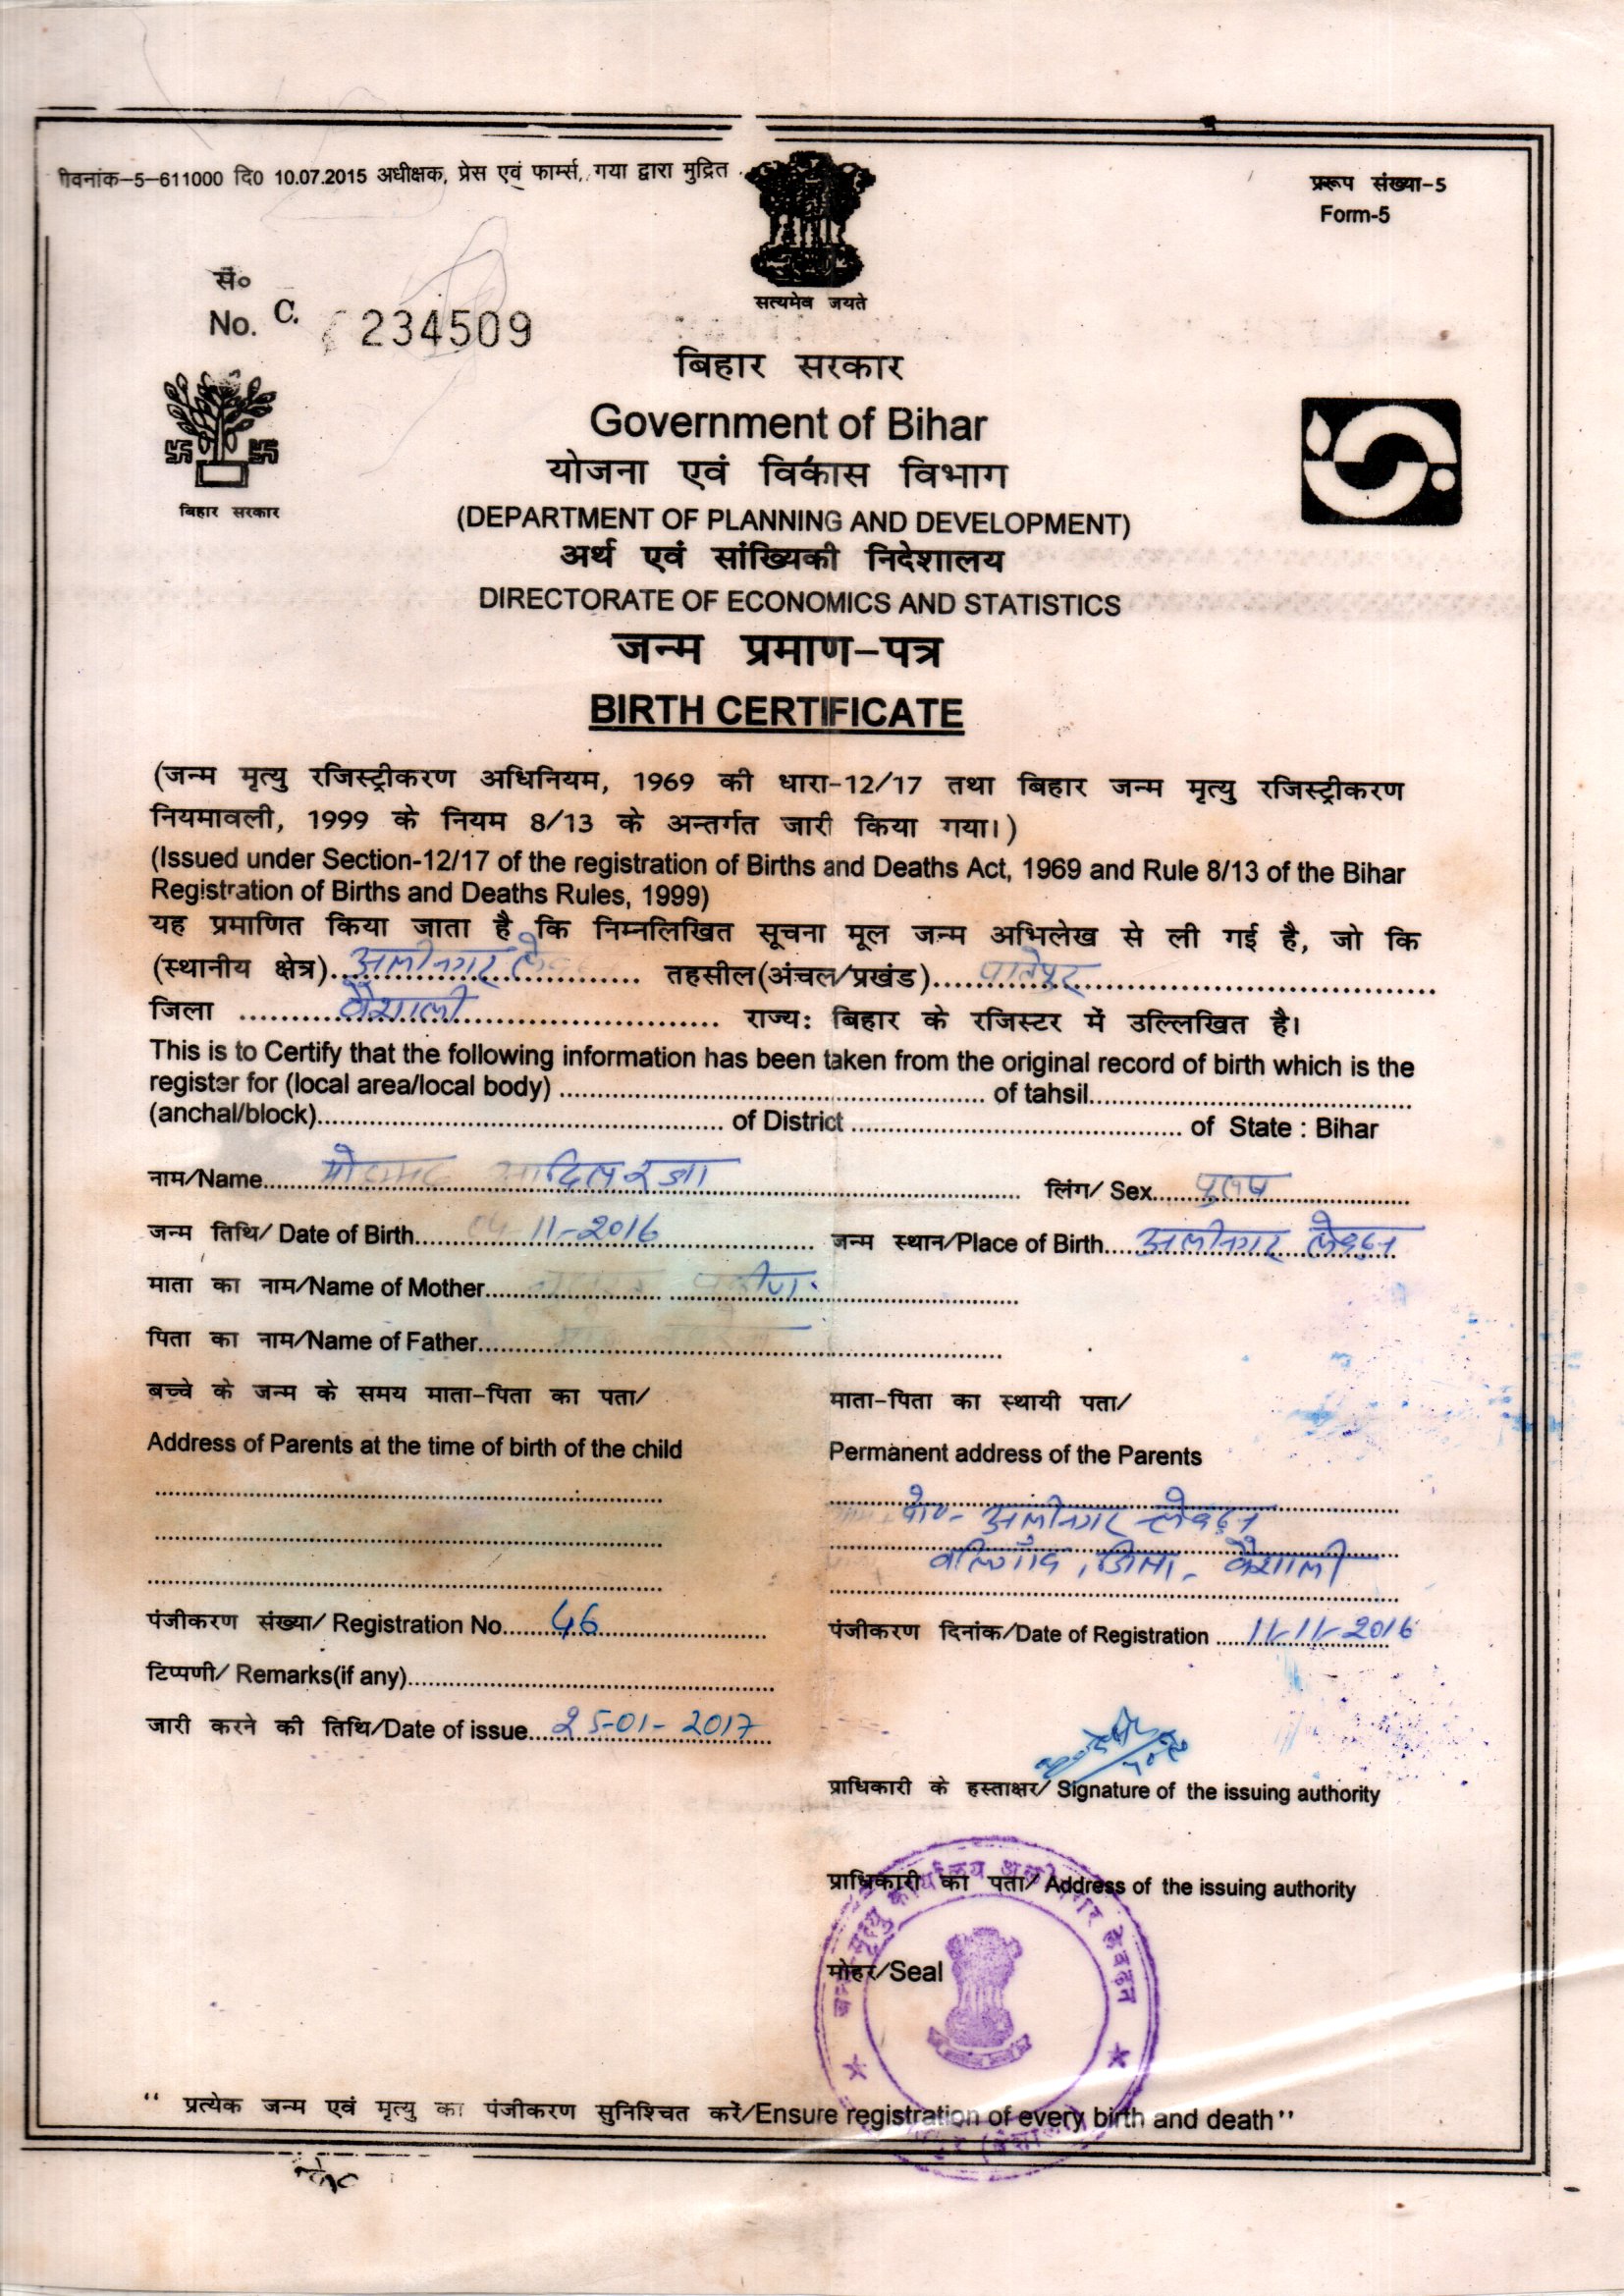 दि0 10.07.2015 अधीक्षक, प्रेस एवं फार्म्स, गया द्वारा मुद्रित
प्ररूप संख्या-5
Form-5
सत्यमेव जयते
सं०
No. C. 234509
बिहार सरकार
बिहार सरकार
Government of Bihar
योजना एवं विकास विभाग
(DEPARTMENT OF PLANNING AND DEVELOPMENT)
अर्थ एवं सांख्यिकी निदेशालय
DIRECTORATE OF ECONOMICS AND STATISTICS
जन्म प्रमाण-पत्र
BIRTH CERTIFICATE
(जन्म मृत्यु रजिस्ट्रीकरण अधिनियम, 1969 की धारा-12/17 तथा बिहार जन्म मृत्यु रजिस्ट्रीकरण
नियमावली, 1999 के नियम 8/13 के अन्तर्गत जारी किया गया।)
(Issued under Section-12/17 of the registration of Births and Deaths Act, 1969 and Rule 8/13 of the Bihar
Registration of Births and Deaths Rules, 1999)
यह प्रमाणित किया जाता है कि निम्नलिखित सूचना मूल जन्म अभिलेख से ली गई है, जो कि
(स्थानीय क्षेत्र) अलीनगर तहसील(अंचल/प्रखंड) पातेपुर
जिला वैशाली राज्य: बिहार के रजिस्टर में उल्लिखित है।
This is to Certify that the following information has been taken from the original record of birth which is the
register for (local area/local body) of tahsil
(anchal/block) of District of State : Bihar
नाम/Name मोहम्मद आदिल रजा लिंग/ Sex पुरुष
जन्म तिथि/ Date of Birth 11-2016 जन्म स्थान/Place of Birth अलीनगर लेवढन
माता का नाम/Name of Mother
पिता का नाम/Name of Father
बच्चे के जन्म के समय माता-पिता का पता/ माता-पिता का स्थायी पता/
Address of Parents at the time of birth of the child Permanent address of the Parents
पो०- अलीनगर लेवढन
जिला- वैशाली
पंजीकरण संख्या/ Registration No. 46 पंजीकरण दिनांक/Date of Registration 11-11-2016
टिप्पणी/ Remarks(if any)
जारी करने की तिथि/Date of issue 25-01-2017
प्राधिकारी के हस्ताक्षर/ Signature of the issuing authority
प्राधिकारी का पता/ Address of the issuing authority
मोहर/Seal
लेवढन
" प्रत्येक जन्म एवं मृत्यु का पंजीकरण सुनिश्चित करें/Ensure registration of every birth and death"